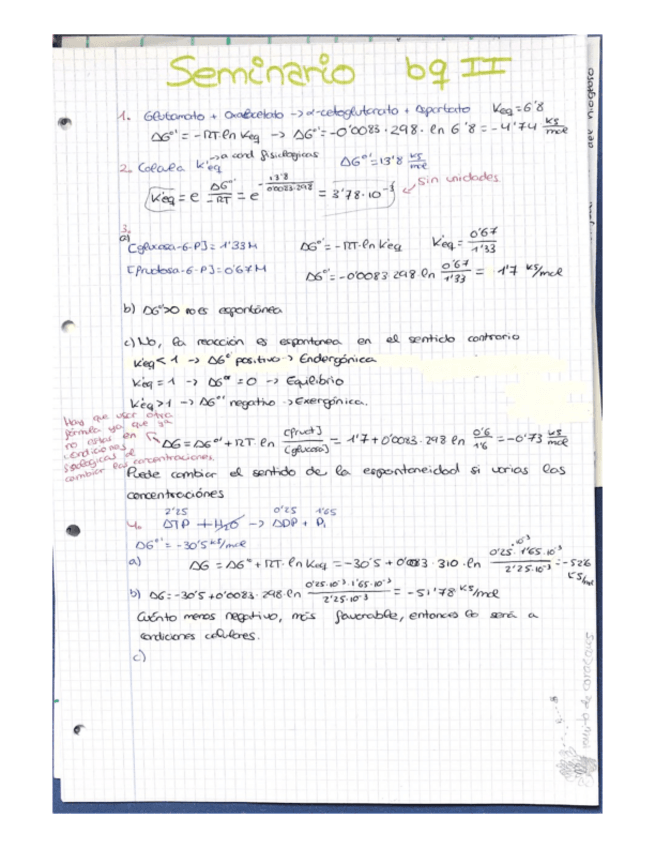 Seminario bq II
1. Glutamato + Oxalacetato -> α-cetoglutarato + Aspartato Keq = 6'8
ΔG°' = -RT·ln Keq -> ΔG°' = -0'0083 · 298 · ln 6'8 = -4'74 KJ/mol
2. Calcula K'eq -> a cond fisiologicas ΔG°' = 13'8 KJ/mol
K'eq = e^(ΔG°'/-RT) = e^(-13'8/0'0083·298) = 3'78·10^-3 sin unidades
3.
a)
[glucosa-6-P] = 1'33 M ΔG°' = -RT·ln K'eq K'eq = 0'67/1'33
[fructosa-6-P] = 0'67 M ΔG°' = -0'0083·298 ln 0'67/1'33 = 1'7 KJ/mol
b) ΔG°'>0 no es espontánea
c) No, la reacción es espontanea en el sentido contrario
K'eq < 1 -> ΔG°' positivo -> Endergónica
K'eq = 1 -> ΔG°' = 0 -> Equilibrio
K'eq > 1 -> ΔG°' negativo -> Exergónica.
Hay que usar otra
fórmula ya que
no estas en
condiciones
fisiologicas al
cambiar las concentraciones.
ΔG = ΔG°' + RT·ln [fruct]/[glucosa] = 1'7 + 0'0083·298 ln 0'6/1'6 = -0'73 KJ/mol
Puede cambiar el sentido de la espontaneidad si varias las
concentraciónes
2'25 0'25 1'65
4. ATP + H2O -> ADP + Pi
ΔG°' = -30'5 KJ/mol
a) ΔG = ΔG° + RT·ln Keq = -30'5 + 0'0083 · 310 · ln 0'25·10^-3·1'65·10^-3/2'25·10^-3 = -52'6 KJ/mol
b) ΔG = -30'5 + 0'0083·298·ln 0'25·10^-3·1'65·10^-3/2'25·10^-3 = -51'78 KJ/mol
Cuánto menos negativo, más favorable, entonces lo será a
condiciones celulares.
c)